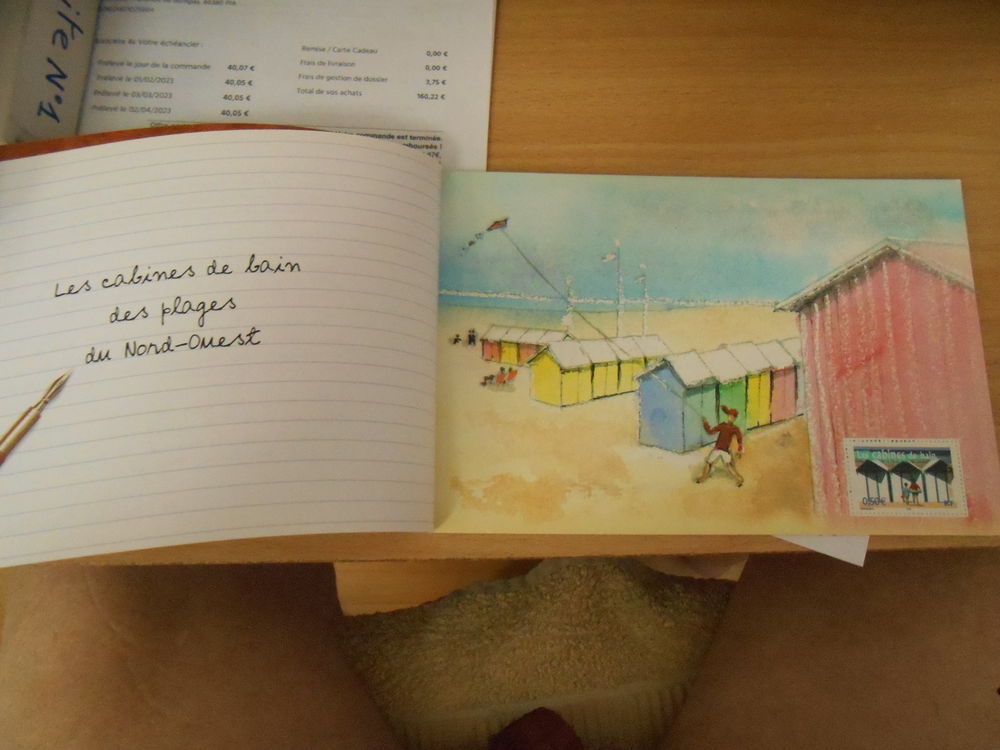 ite N°1
Votre échéancier :
Prélevé le jour de la commande 40,07 €
Prélevé le 01/02/2023 40,05 €
Prélevé le 03/03/2023 40,05 €
Prélevé le 02/04/2023 40,05 €
Remise / Carte Cadeau 0,00 €
Frais de livraison 0,00 €
Frais de gestion de dossier 3,75 €
Total de vos achats 160,22 €
commande est terminée
Les cabines de bain
des plages
du Nord-Ouest
Les cabines de bain
0,50€